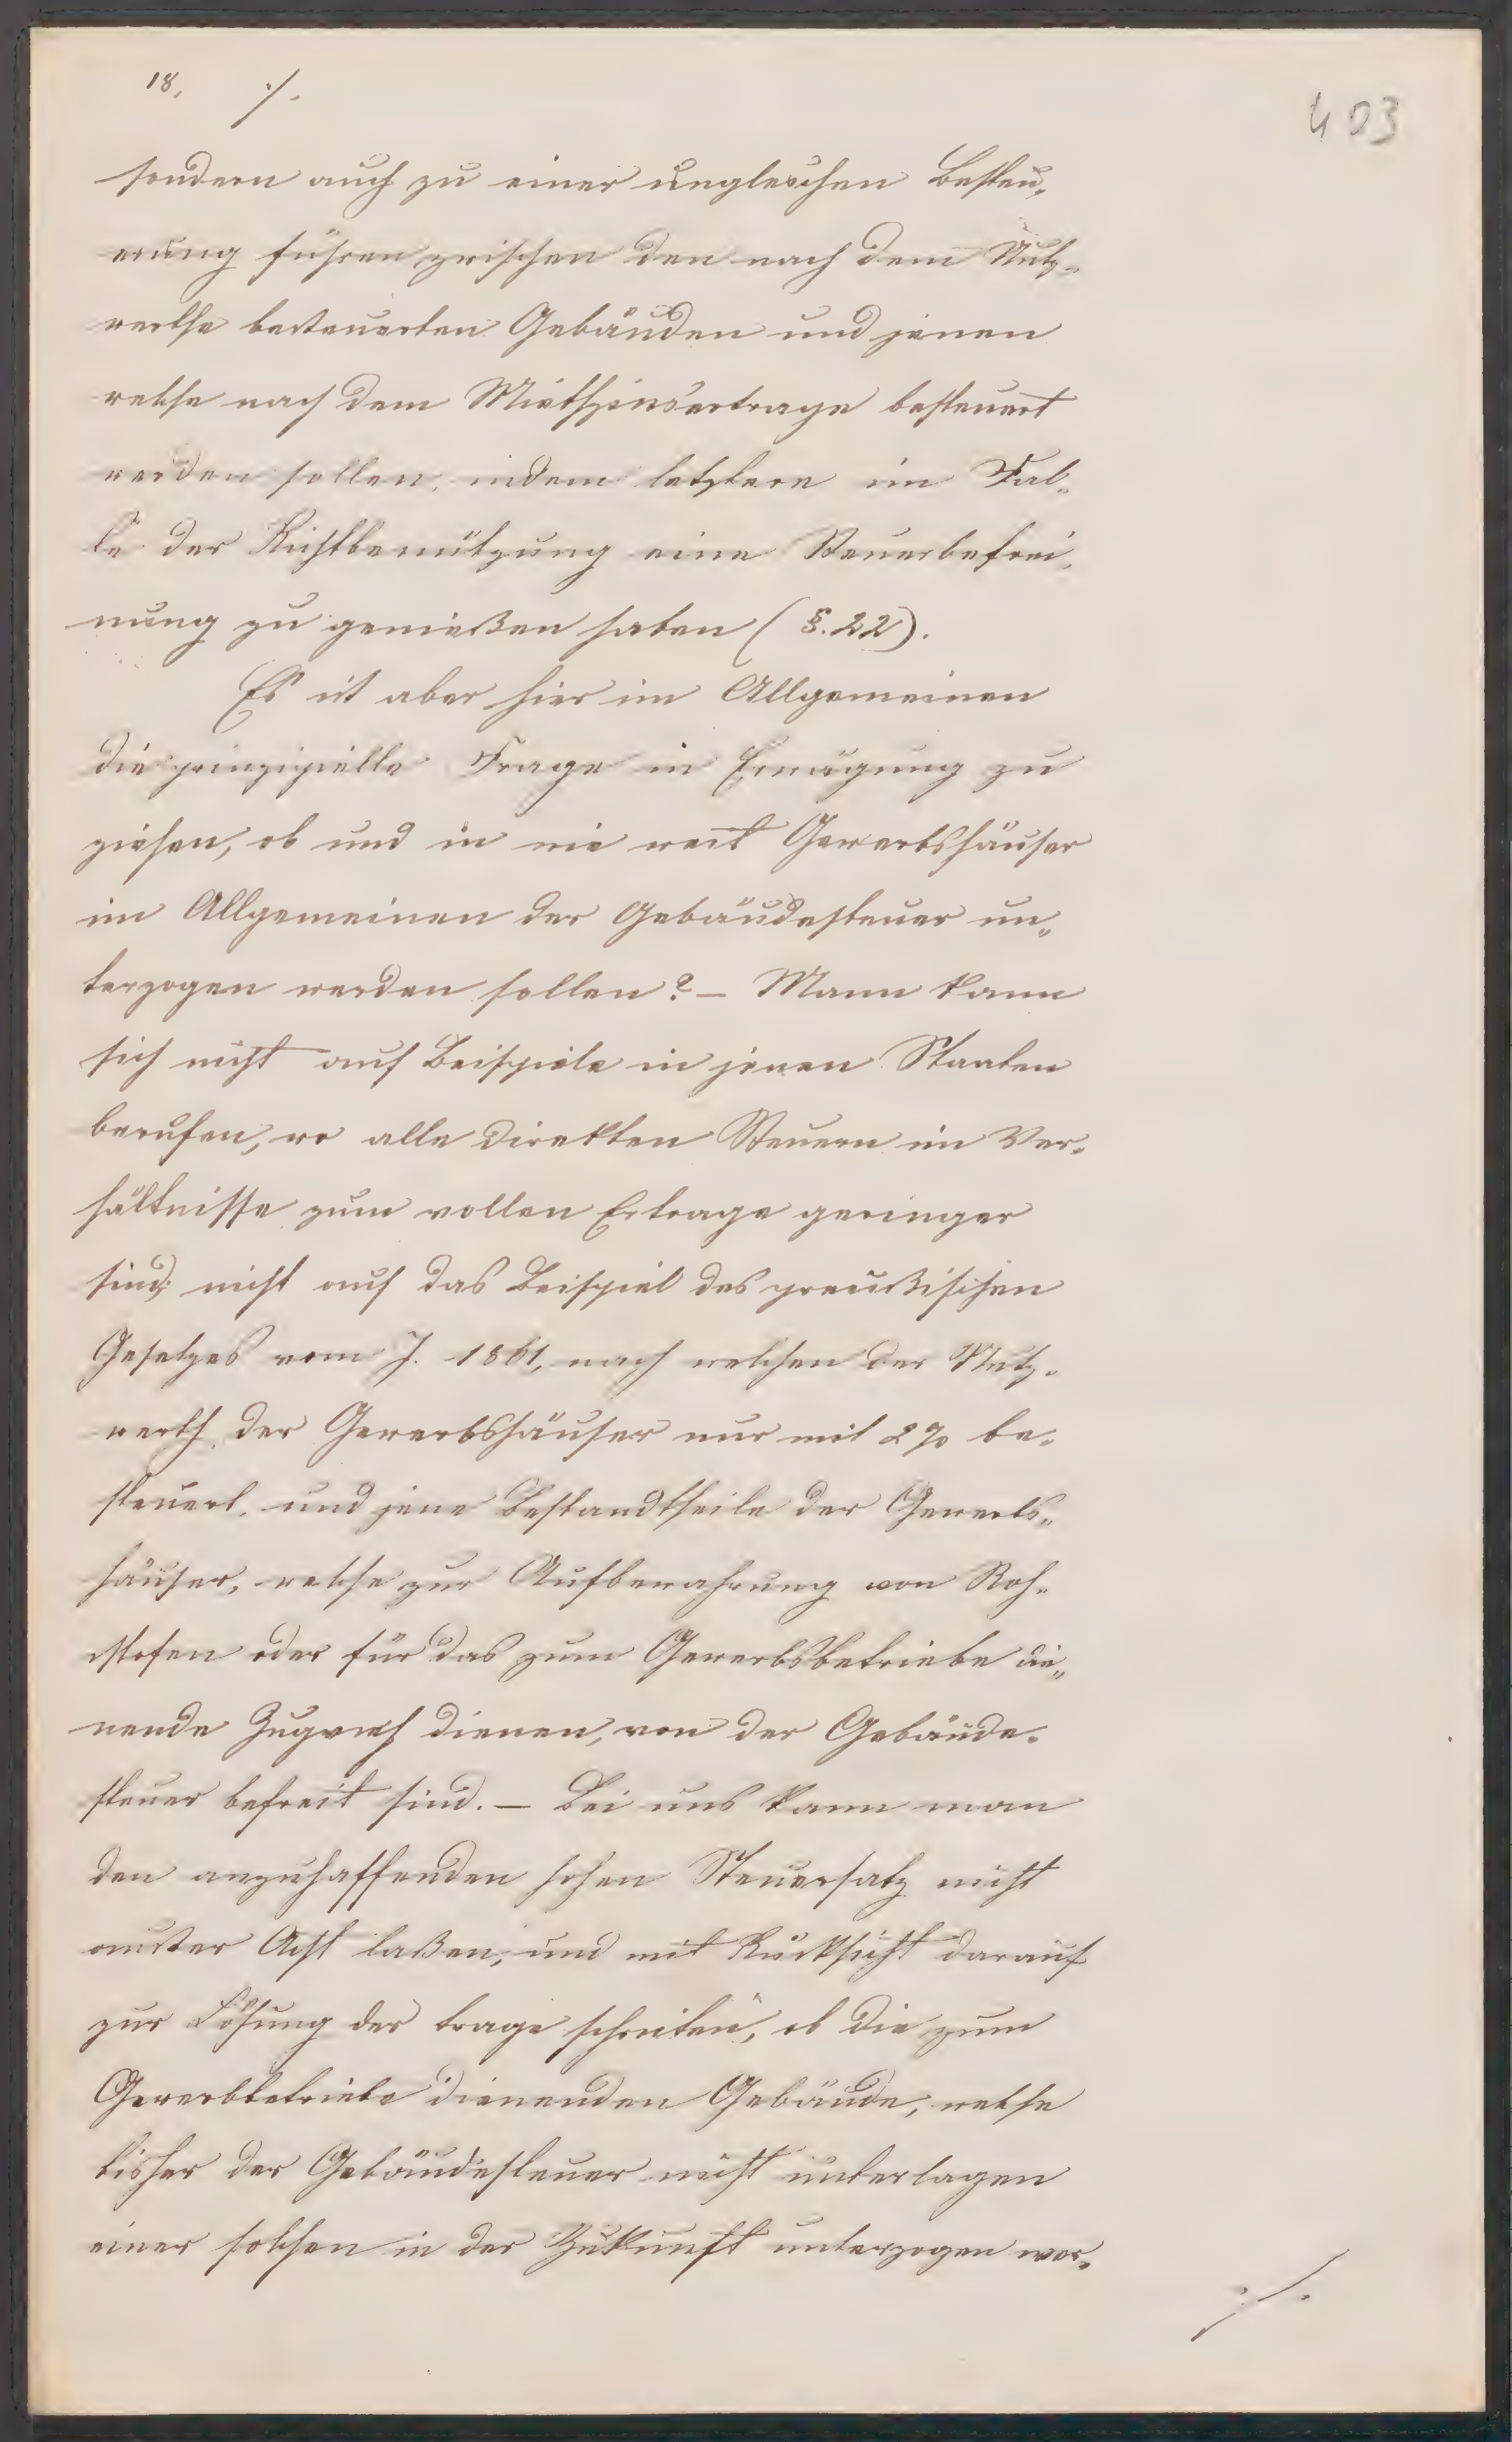 18. ./.
403
sondern auch zu einer ungleichen Besteu„
erung führen zwischen den nach dem Nutz„
werthe besteuerten Gebäuden und jenen
welche nach dem Miethzinsertrage besteuert
werden sollen, indem letztere im Fal„
le der Nichtbenützung eine Steuerbefrei„
nung zu genießen haben (§. 22).
Es ist aber hier im Allgemeinen
die prinzipielle Frage in Erwägung zu
ziehen, ob und in wie weit Gewerbshäuser
im Allgemeinen der Gebäudesteuer un„
terzogen werden sollen? – Mann kann
sich nicht auf Beispiele in jenen Staaten
berufen, wo alle direkten Steuern im Ver„
hältnisse zum vollen Ertrage geringer
sind; nicht auf das Beispiel des preußischen
Gesetzes vom J. 1861, nach welchen der Nutz„
werth der Gewerbshäuser nur mit 2% be„
steuert, und jene Bestandtheile der Gewerbs„
häuser, welche zur Aufbewahrung von Roh„
stofen oder für das zum Gewerbsbetriebe die„
nende Zugvieh dienen, von der Gebäude„
steuer befreit sind. – Bei uns kann man
den anzuhoffenden hohen Steuersatz nicht
ausser Acht laßen, und mit Rücksicht darauf
zur Lösung der Frage schreiten, ob die zum
Gewerbbetriebe dienenden Gebäude, welche
bisher der Gebäudesteuer nicht unterlagen
einer solchen in der Zukunft unterzogen wer„
./.